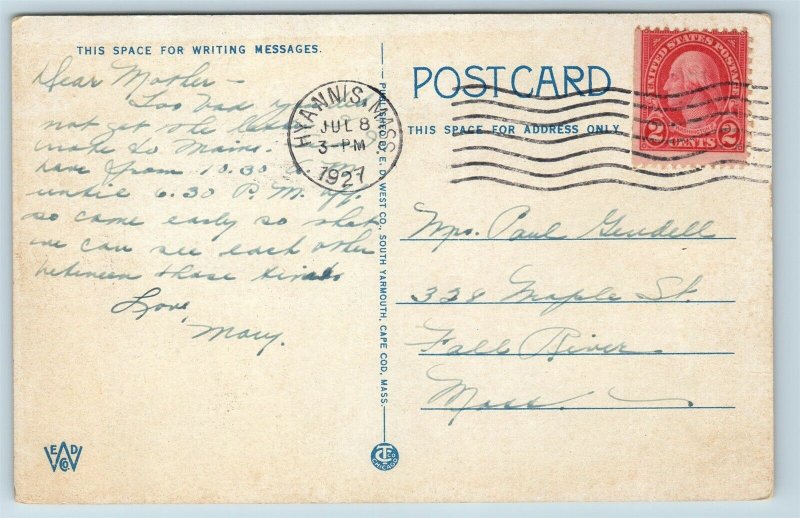 THIS SPACE FOR WRITING MESSAGES.
Dear Mother –
Too bad you
not get the
to Maine.
have from 10.30
until 6.30 P.M.
so come early so that
we can see each other
between those
Love,
Mary.
HYANNIS, MASS.
JUL 8
3-PM
1927
PUBLISHED BY E. D. WEST CO., SOUTH YARMOUTH, CAPE COD, MASS.
POST CARD
THIS SPACE FOR ADDRESS ONLY
UNITED STATES POSTAGE
2 CENTS 2
Mrs. Paul Gendell
328 Maple St.
Fall River
Mass.
E D
W
CO
CHICAGO